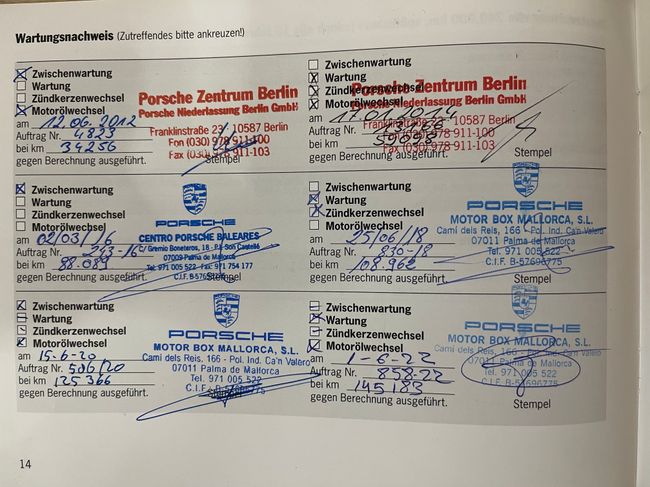 Wartungsnachweis (Zutreffendes bitte ankreuzen!)
Zwischenwartung
Wartung
Zündkerzenwechsel
Motorölwechsel
am 12.06.2012
Auftrag Nr. 4823
bei km 34256
gegen Berechnung ausgeführt.
Porsche Zentrum Berlin
Porsche Niederlassung Berlin GmbH
Franklinstraße 23, 10587 Berlin
Fon (030) 978 911-100
Fax (030) 978 911-103
Stempel
Zwischenwartung
Wartung
Zündkerzenwechsel
Motorölwechsel
am
Auftrag Nr.
bei km
gegen Berechnung ausgeführt.
Porsche Zentrum Berlin
Porsche Niederlassung Berlin GmbH
Franklinstraße 23, 10587 Berlin
Fon (030) 978 911-100
Fax (030) 978 911-103
Stempel
Zwischenwartung
Wartung
Zündkerzenwechsel
Motorölwechsel
am 02/03/16
Auftrag Nr. 243-16
bei km 88.089
gegen Berechnung ausgeführt.
PORSCHE
CENTRO PORSCHE BALEARES
C/ Gremio Boneteros, 18 - P.I. Son Castelló
07009-Palma de Mallorca
Tel. 971 005 522 - Fax. 971 754 177
C.I.F. B-57696775
Zwischenwartung
Wartung
Zündkerzenwechsel
Motorölwechsel
am 25/06/18
Auftrag Nr. 830-18
bei km 108.962
gegen Berechnung ausgeführt.
PORSCHE
MOTOR BOX MALLORCA, S.L.
Camí dels Reis, 166 - Pol. Ind. Ca'n Valero
07011 Palma de Mallorca
Tel. 971 005 522
C.I.F. B-57696775
Zwischenwartung
Wartung
Zündkerzenwechsel
Motorölwechsel
am 15-6-20
Auftrag Nr. 506/20
bei km 125 366
gegen Berechnung ausgeführt.
PORSCHE
MOTOR BOX MALLORCA, S.L.
Camí dels Reis, 166 - Pol. Ind. Ca'n Valero
07011 Palma de Mallorca
Tel. 971 005 522
C.I.F. B-57696775
Stempel
Zwischenwartung
Wartung
Zündkerzenwechsel
Motorölwechsel
am 1-6-22
Auftrag Nr. 858-22
bei km 145183
gegen Berechnung ausgeführt.
PORSCHE
MOTOR BOX MALLORCA, S.L.
Camí dels Reis, 166 - Pol. Ind. Ca'n Valero
07011 Palma de Mallorca
Tel. 971 005 522
C.I.F. B-57696775
Stempel
14